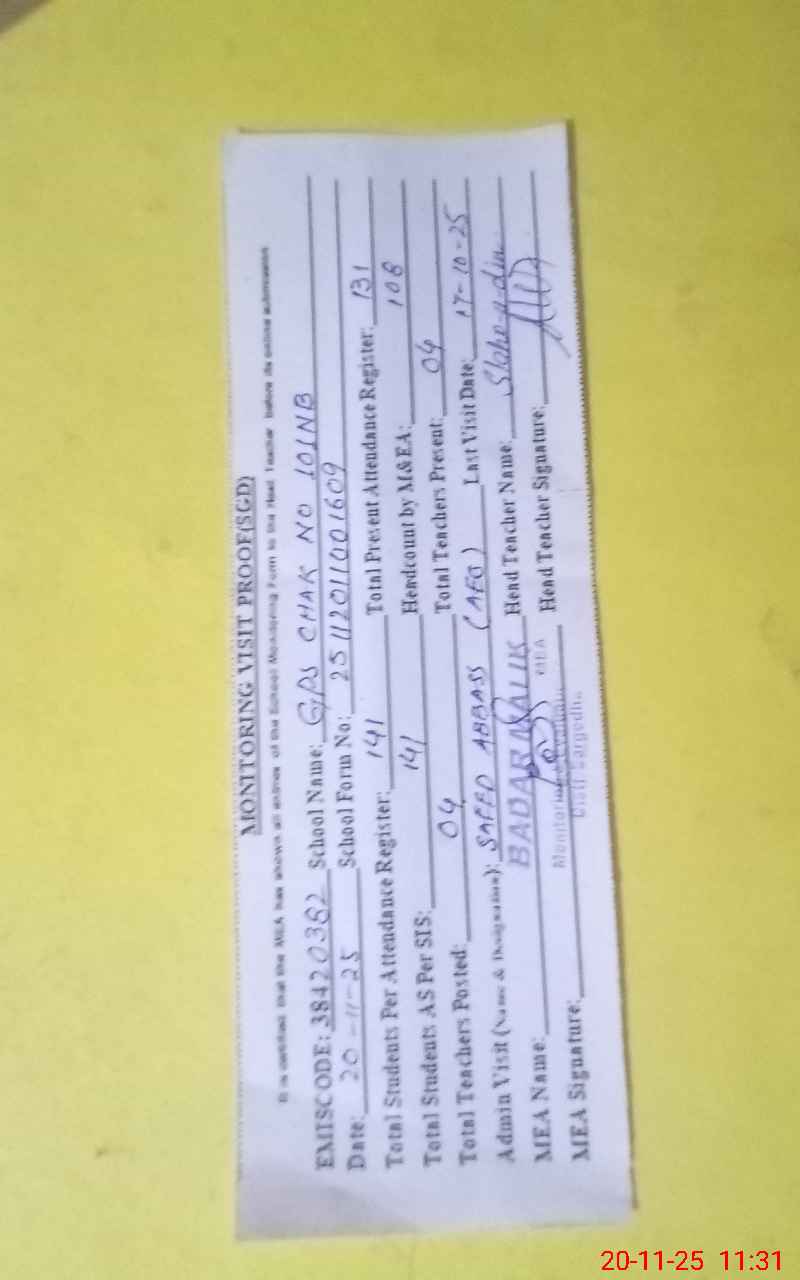 MONITORING VISIT PROOF(SGD)
It is certified that the MEA has shown all entries of the School Monitoring Form to the Head Teacher before its online submission
EMISCODE: 38420382 School Name: GPS CHAK NO 101NB
Date: 20-11-25 School Form No: 25112011001609
Total Students Per Attendance Register: 141 Total Present Attendance Register: 131
Total Students AS Per SIS: 141 Headcount by M&EA: 108
Total Teachers Posted: 04 Total Teachers Present: 04
Admin Visit (Name & Designation): SAEED ABBASS (AEO) Last Visit Date: 17-10-25
MEA Name: BADAR MALIK Head Teacher Name:
MEA Signature: Head Teacher Signature:
MEA
Distt Sargodha
20-11-25 11:31